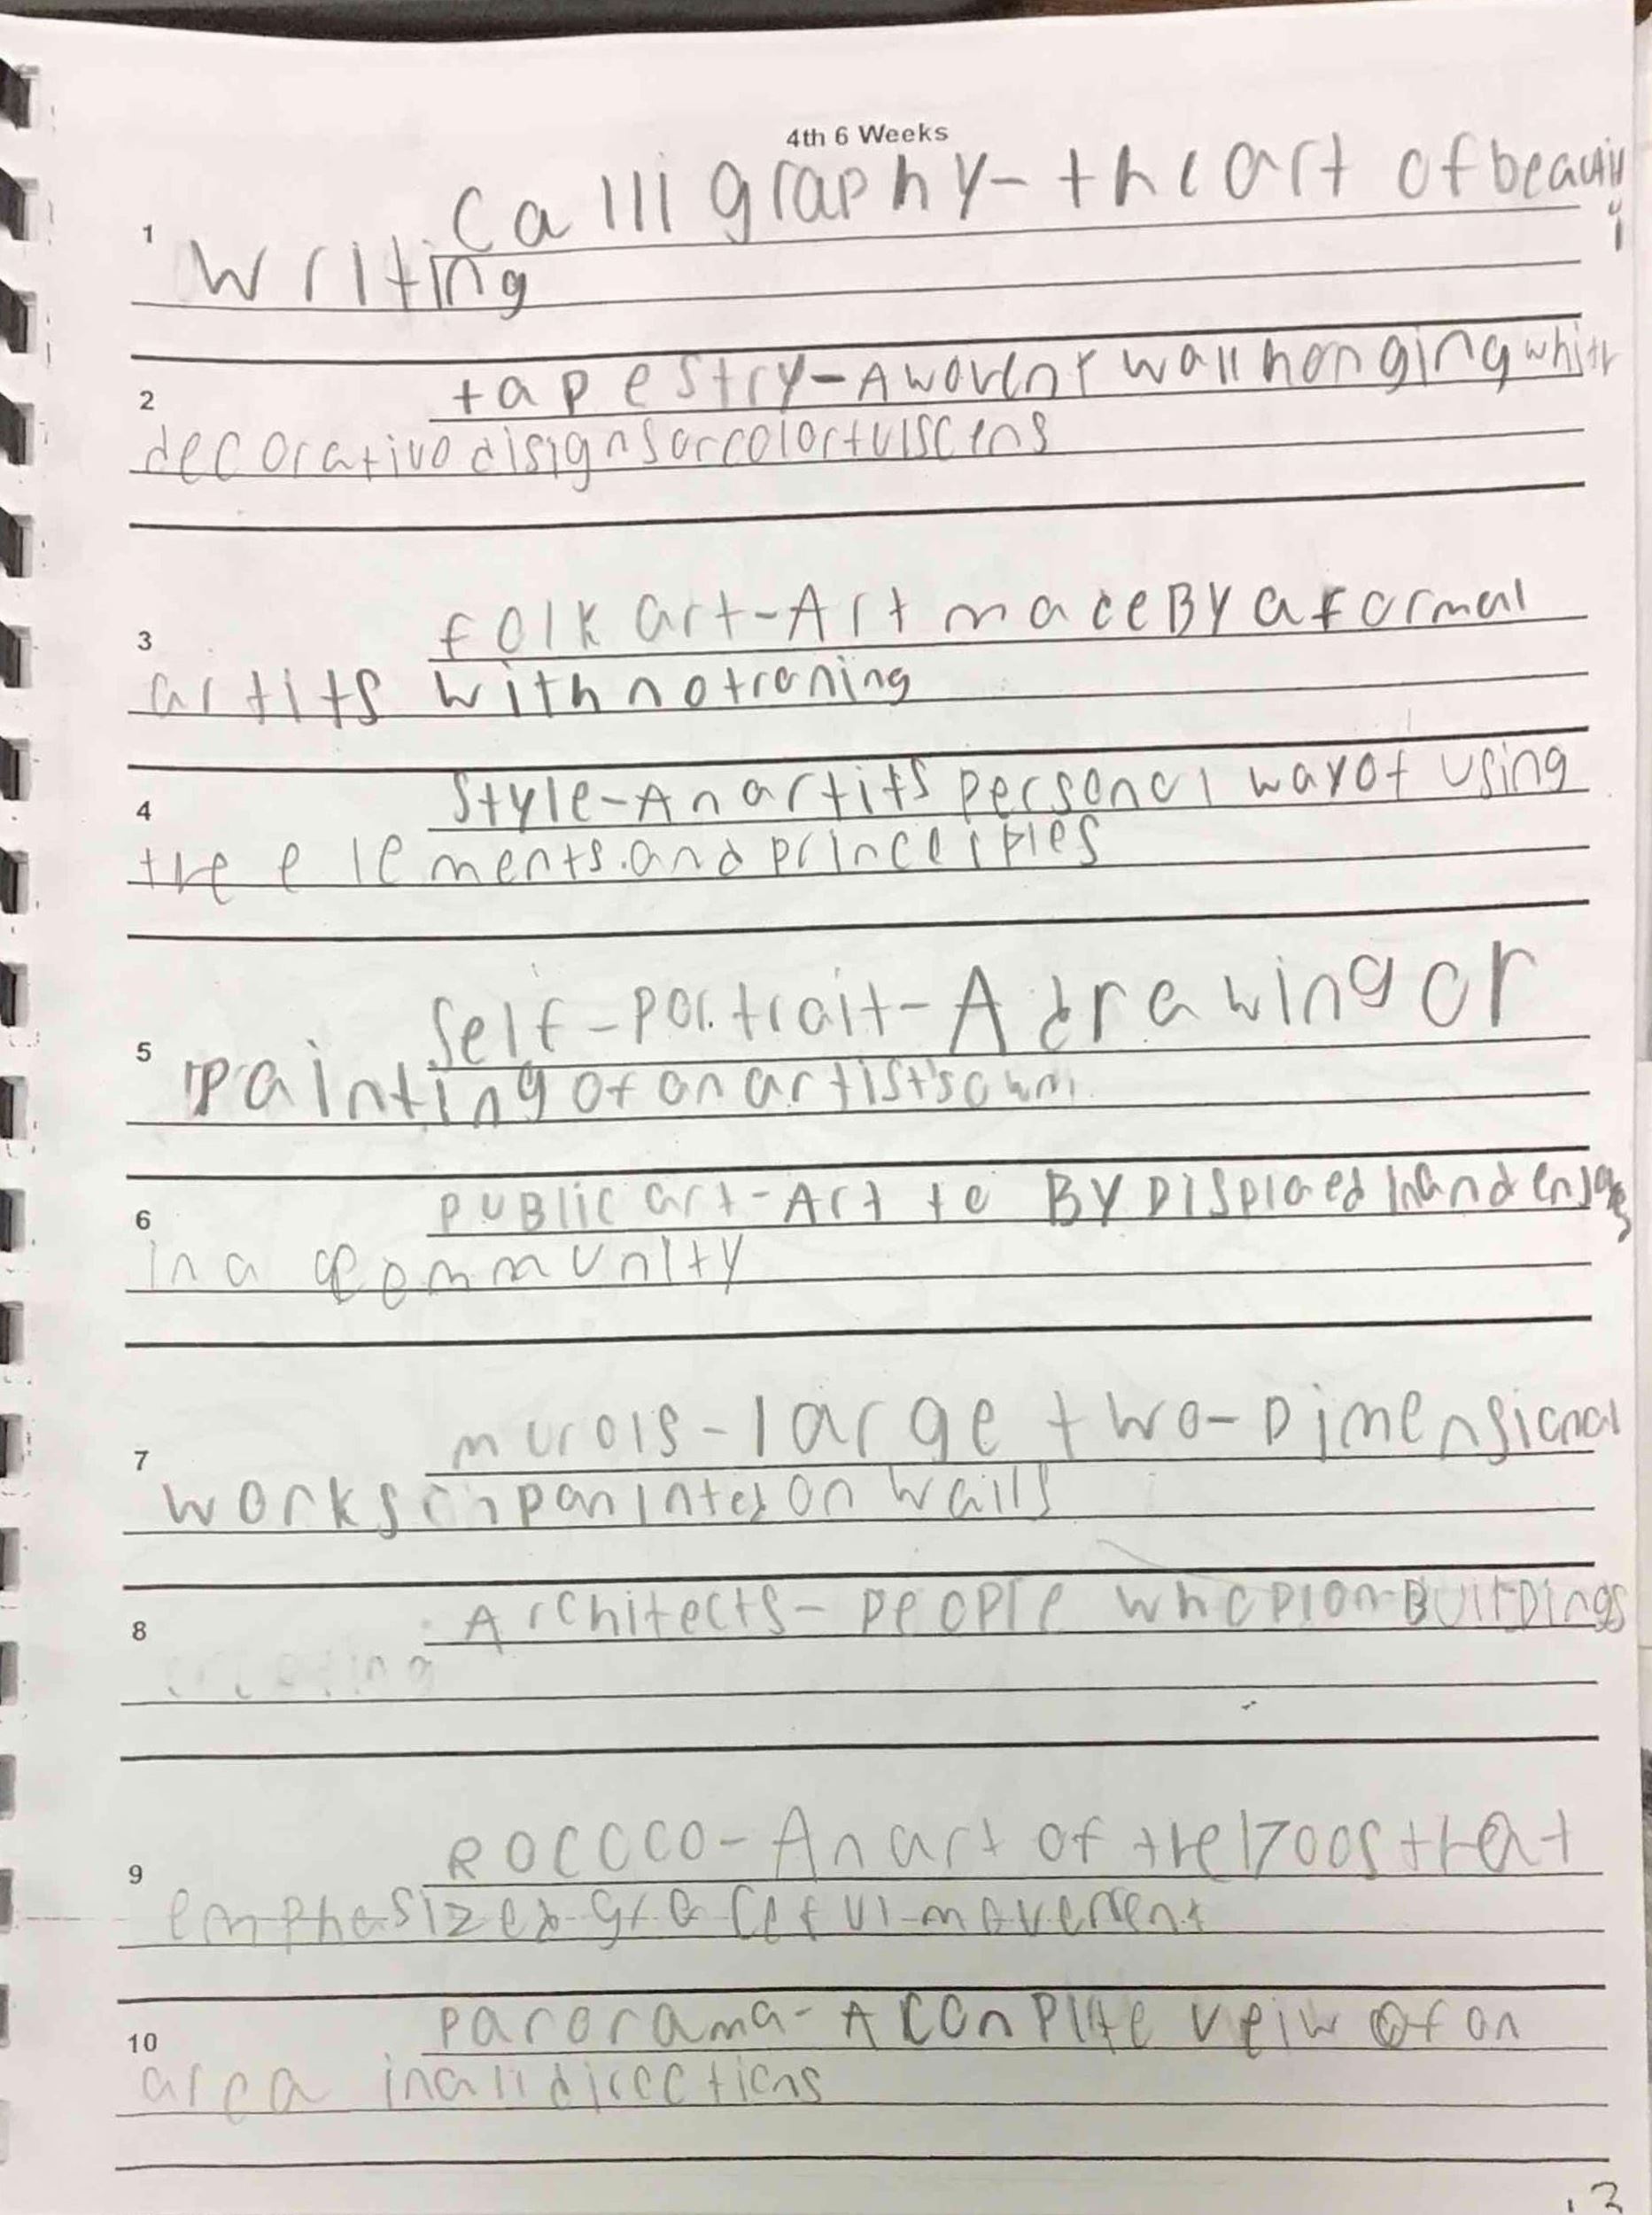 4th 6 Weeks
1 Calligraphy- the art of
writing
2 tapestry-A wall hanging
decorative disigns or colorful scens
3 folk art-Art made By a formal
artits with no traning
4 Style-An artits personal way of using
the elements and princeiples
5 Self-portrait-A drawing or
painting of an artist's own
6 PUBlic art-Art to By DISplaed and
in a community
7 murals-large two-Dimensional
works on walls
8 Architects-people who plan Buildings
9 ROCOCO-An art of the 1700s that
emphasized graceful movement
10 panorama-A conplite veiw of an
area in all directions